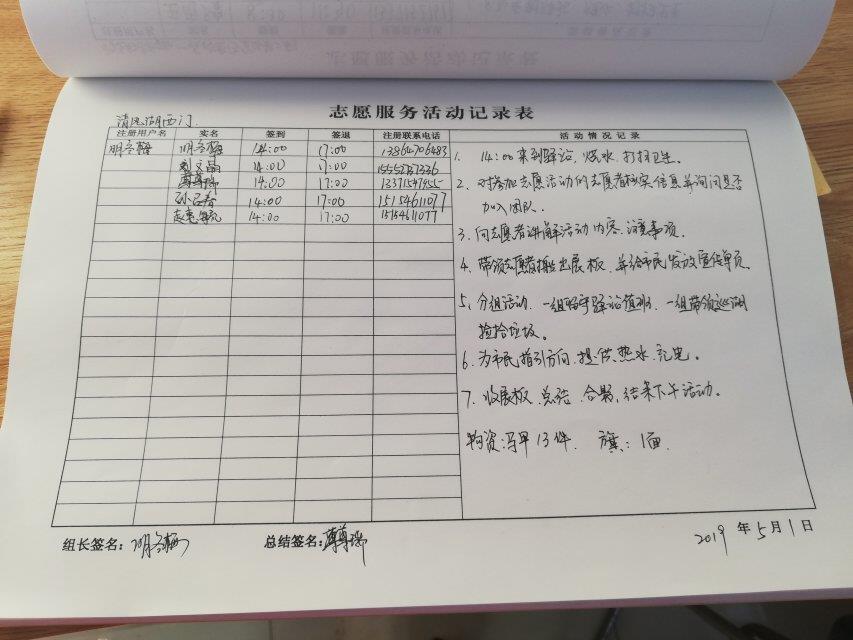 志愿服务活动记录表
清风湖西门
注册用户名 实名 签到 签退 注册联系电话 活动情况记录
明冬梅 明冬梅 14:00 17:00 13864706483
刘文晶 14:00 17:00 15552787336
14:00 17:00 13371547955
孙召春 14:00 17:00 15154611077
14:00 17:00 15154611077
1. 14:00来到驿站,烧水,打扫卫生。
2. 对参加志愿活动的志愿者核实信息并询问是否
加入团队。
3. 向志愿者讲解活动内容、注意事项。
4. 带领志愿者搬出展板,并给市民发放宣传单页。
5. 分组活动,一组留守驿站值班,一组带领巡湖
捡拾垃圾。
6. 为市民指引方向、提供热水、充电。
7. 收展板、总结、合影,结束下午活动。
物资:马甲13件. 旗:1面.
组长签名:明冬梅 总结签名: 2019年5月1日